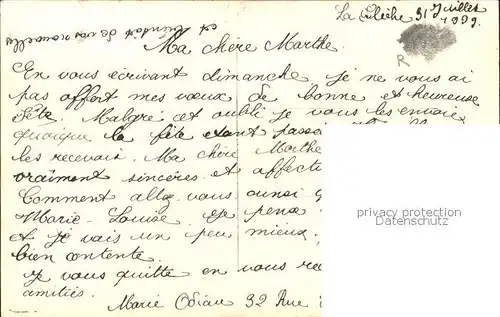 La Flèche 31 Juillet
1939.
et bientôt de vos nouvelles
Ma chère Marthe.
En vous écrivant dimanche je ne vous ai
pas offert mes vœux de bonne et heureuse
fête. Malgré cet oubli je vous les envoie
quoique la fête etant passé
les recevoir. Ma chère Marthe
vraiment sincères et affecti
Comment allez-vous ainsi q
Marie-Louise. je pense
et je vais un peu mieux.
bien contente.
Je vous quitte en vous rec
amitiés.
Marie 32 Rue
privacy protection
www.oldthing.de
R